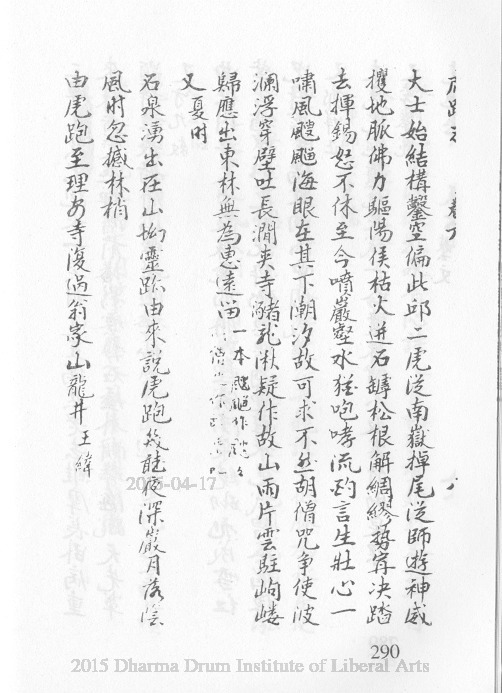 大士始結構鑿空偏此邱二虎從南嶽掉尾從師遊神威
攫地脈佛力驅陽侯枯火迸石罅松根解綢繆勢穿決踏
去揮錫怒不休至今噴巖壑水猶咆哮流酌言生壯心一
嘯風颼飀海眼在其下潮汐故可求不然胡僧咒爭使波
瀾浮穿壁吐長澗夾寺豬龍湫疑作故山雨片雲駐岣嶁
歸應出東林與為惠遠留 一本颼飀作
又夏時
石泉湧出在山坳靈跡由來說虎跑夜深巖月落陰
風時忽撼林梢
由虎跑至理安寺復過翁家山龍井 王緯
2015-04-17
290
2015 Dharma Drum Institute of Liberal Arts